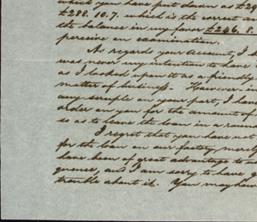 which you have put down as £29
£288. 10. 7. which is the correct am
the balance in my favor £246. 8.
perceive on examination.
As regards your Account, I
was never my intention to have
as I looked upon it as a friendly
matter of business. However in
any scruple on your part, I have
order on you for the amount of
so as to leave the loan in a roun
I regret that you have not
for the loan on our factory, merely
have been of great advantage to
quences, and I am sorry to have g
trouble about it. You may how